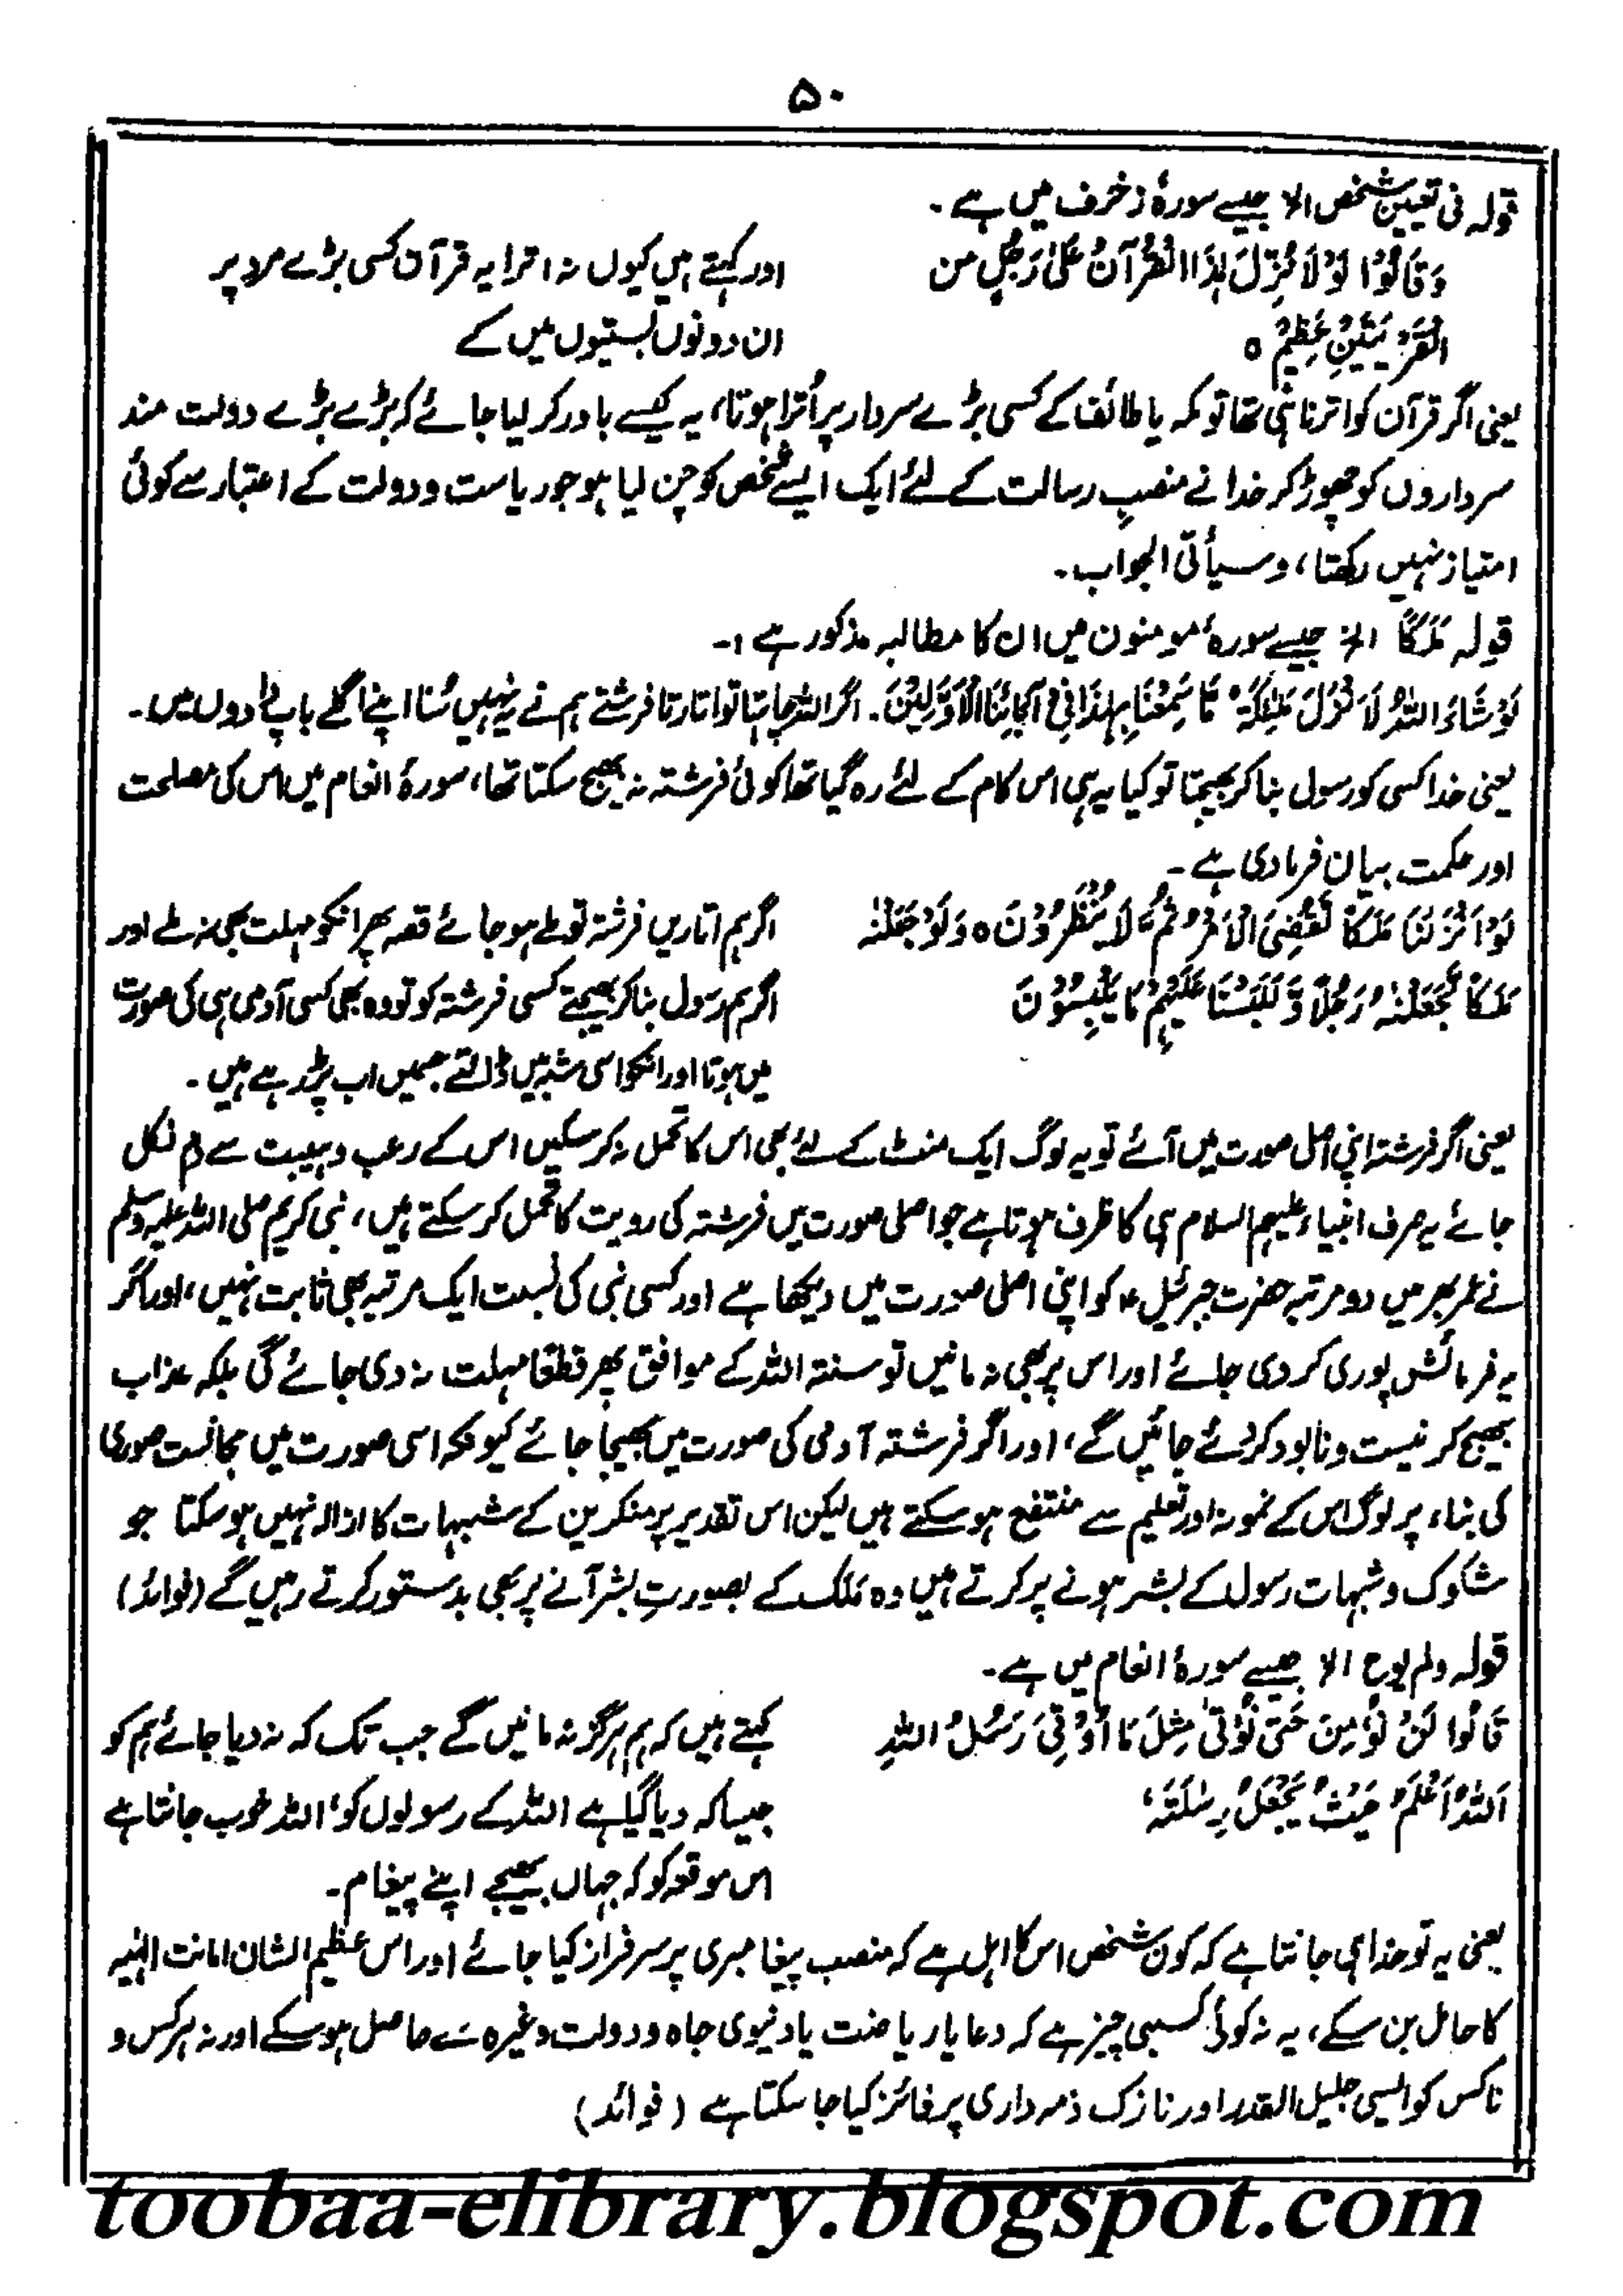 ۵۰
قولہ فی تعیین شخص الخ جیسے سورۂ زخرف میں ہے۔
وَقَالُوْا لَوْلَا نُزِّلَ ہٰذَا الْقُرْآنُ عَلٰی رَجُلٍ من
اور کہتے ہیں کیوں نہ اترا یہ قرآن کسی بڑے مرد پر
الْقَرْیَتَیْنِ عَظِیْمٌ ہ
ان دونوں بستیوں میں کے
یعنی اگر قرآن کو اترنا ہی تھا تو مکہ یا طائف کے کسی بڑے سردار پر اُترا ہوتا، یہ کیسے باور کر لیا جائے کہ بڑے بڑے دولت مند
سرداروں کو چھوڑ کر خدا نے منصبِ رسالت کے لئے ایک ایسے شخص کو چن لیا ہو جو ریاست و دولت کے اعتبار سے کوئی
امتیاز نہیں رکھتا، وسیأتی الجواب۔
قولہ مَلَکًا الخ جیسے سورۂ مومنون میں ان کا مطالبہ مذکور ہے :-
لَوْ شَاءَ اللّٰہُ لَاَنْزَلَ مَلٰئِکَۃً مَّا سَمِعْنَا بِہٰذَا فِیْ آبَائِنَا الْاَوَّلِیْنَ۔ اگر اللہ چاہتا تو اتارتا فرشتے ہم نے یہ نہیں سُنا اپنے اگلے باپ دادوں میں۔
یعنی خدا کسی کو رسول بنا کر بھیجتا تو کیا یہ ہی اس کام کے لئے رہ گیا تھا کوئی فرشتہ نہ بھیج سکتا تھا، سورۂ انعام میں اس کی مصلحت
اور حکمت بیان فرما دی ہے۔
لَوْ اَنْزَلْنَا مَلَکًا لَّقُضِیَ الْاَمْرُ ثُمَّ لَا یُنْظَرُوْنَ ہ وَلَوْ جَعَلْنٰہُ
اگر ہم اتاریں فرشتہ تو طے ہو جائے قصہ پھر انکو مہلت بھی نہ ملے اور
مَلَکًا لَّجَعَلْنٰہُ رَجُلًا وَّلَلَبَسْنَا عَلَیْہِمْ مَّا یَلْبِسُوْنَ
اگر ہم رسول بنا کر بھیجتے کسی فرشتہ کو تو وہ بھی کسی آدمی ہی کی صورت
میں ہوتا اور انکو اسی شبہ میں ڈالتے جسمیں اب پڑ رہے ہیں۔
یعنی اگر فرشتہ اپنی اصل صورت میں آئے تو یہ لوگ ایک منٹ کے لئے بھی اس کا تحمل نہ کر سکیں اس کے رعب و ہیبت سے دم نکل
جائے یہ صرف انبیاء علیہم السلام ہی کا ظرف ہوتا ہے جو اصلی صورت میں فرشتہ کی رویت کا تحمل کر سکتے ہیں، نبی کریم صلی اللہ علیہ وسلم
نے عمر بھر میں دو مرتبہ حضرت جبرئیل ؑ کو اپنی اصلی صورت میں دیکھا ہے اور کسی نبی کی نسبت ایک مرتبہ بھی ثابت نہیں، اور اگر
یہ فرمائش پوری کر دی جائے اور اس پر بھی نہ مانیں تو سنۃ اللہ کے موافق پھر قطعًا مہلت نہ دی جائے گی بلکہ عذاب
بھیج کر نیست و نابود کر دئے جائیں گے، اور اگر فرشتہ آدمی کی صورت میں بھیجا جائے کیونکہ اسی صورت میں مجانست صوری
کی بناء پر لوگ اس کے نمونہ اور تعلیم سے منتفع ہو سکتے ہیں لیکن اس تقدیر پر منکرین کے شبہات کا ازالہ نہیں ہو سکتا جو
شکوک و شبہات رسول کے بشر ہونے پر کرتے ہیں وہ مَلَک کے بصورتِ بشر آنے پر بھی بدستور کرتے رہیں گے (فوائد)
قولہ ولم یوح الخ جیسے سورۂ انعام میں ہے۔
قَالُوْا لَنْ نُّؤْمِنَ حَتّٰی نُؤْتٰی مِثْلَ مَا اُوْتِیَ رَسُلُ اللّٰہِ
کہتے ہیں کہ ہم ہرگز نہ مانیں گے جب تک کہ نہ دیا جائے ہم کو
اَللّٰہُ اَعْلَمُ حَیْثُ یَجْعَلُ رِسٰلَتَہٗ،
جیسا کہ دیا گیا ہے اللہ کے رسولوں کو، اللہ خوب جانتا ہے
اس موقعہ کو کہ جہاں بھیجے اپنے پیغام۔
یعنی یہ تو خدا ہی جانتا ہے کہ کون شخص اس کا اہل ہے کہ منصب پیغامبری پر سرفراز کیا جائے اور اس عظیم الشان امانت الٰہیہ
کا حامل بن سکے، یہ نہ کوئی کسبی چیز ہے کہ دعا یا ریاضت یا دنیوی جاہ و دولت وغیرہ سے حاصل ہو سکے اور نہ ہر کس و
ناکس کو ایسی جلیل القدر اور نازک ذمہ داری پر فائز کیا جا سکتا ہے (فوائد)
toobaa-elibrary.blogspot.com